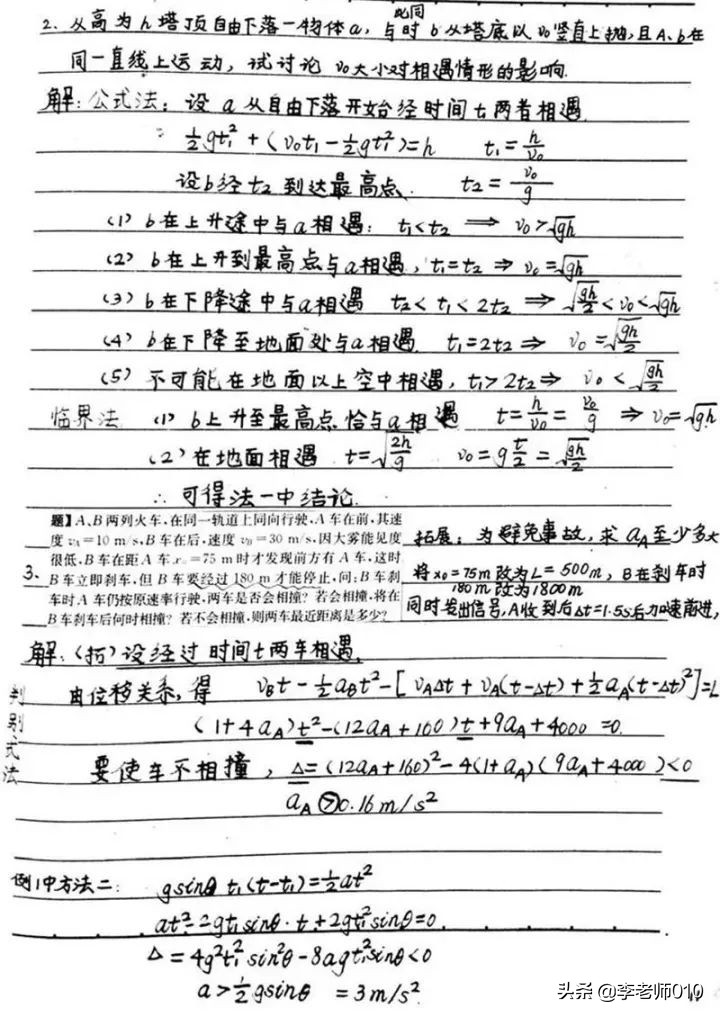 此同
2. 从高为h塔顶自由下落一物体a，与时b从塔底以v₀竖直上抛，且A、b在
同一直线上运动，试讨论 v₀大小对相遇情形的影响.
解：公式法：设a从自由下落开始经时间t₁两者相遇
½gt₁²+(v₀t₁-½gt₁²)=h t₁=h/v₀
设b经t₂到达最高点. t₂=v₀/g
(1) b在上升途中与a相遇：t₁<t₂ ⇒ v₀>√gh
(2) b在上升到最高点与a相遇，t₁=t₂ ⇒ v₀=√gh
(3) b在下降途中与a相遇 t₂<t₁<2t₂ ⇒ √(gh/2)<v₀<√gh
(4) b在下降至地面处与a相遇. t₁=2t₂ ⇒ v₀=√(gh/2)
(5) 不可能在地面以上空中相遇，t₁>2t₂ ⇒ v₀<√(gh/2)
临界法 (1) b上升至最高点恰与a相遇 t=h/v₀=v₀/g ⇒ v₀=√gh
(2) 在地面相遇 t=√(2h/g) v₀=g t/2=√(gh/2)
∴ 可得法一中结论.
3. 题】A、B两列火车,在同一轨道上同向行驶,A车在前,其速
度 vA=10 m/s,B车在后,速度 vB=30 m/s,因大雾能见度
很低,B车在距A车 x₀=75 m时才发现前方有A车,这时
B车立即刹车,但B车要经过180 m才能停止,问:B车刹
车时A车仍按原速率行驶,两车是否会相撞?若会相撞,将在
B车刹车后何时相撞?若不会相撞,则两车最近距离是多少?
拓展：为避免事故，求aA至少多大
将x₀=75m改为L=500m，B在刹车时
180m改为1800m
同时发出信号,A收到后Δt=1.5s后加速前进,
解：(拓) 设经过时间t两车相遇.
判别式法
由位移关系，得 vBt-½aBt²-[vAΔt+vA(t-Δt)+½aA(t-Δt)²]=L
(1+4aA)t²-(12aA+160)t+9aA+4000=0.
要使车不相撞，Δ=(12aA+160)²-4(1+aA)(9aA+4000)<0
aA>0.16m/s²
例1中方法二： gsinθ t₁(t-t₁)=½at²
at²-2gt₁sinθ·t+2gt₁²sinθ=0
Δ=4g²t₁²sin²θ-8agt₁²sinθ<0
a>½gsinθ =3m/s²
头条 @李老师010